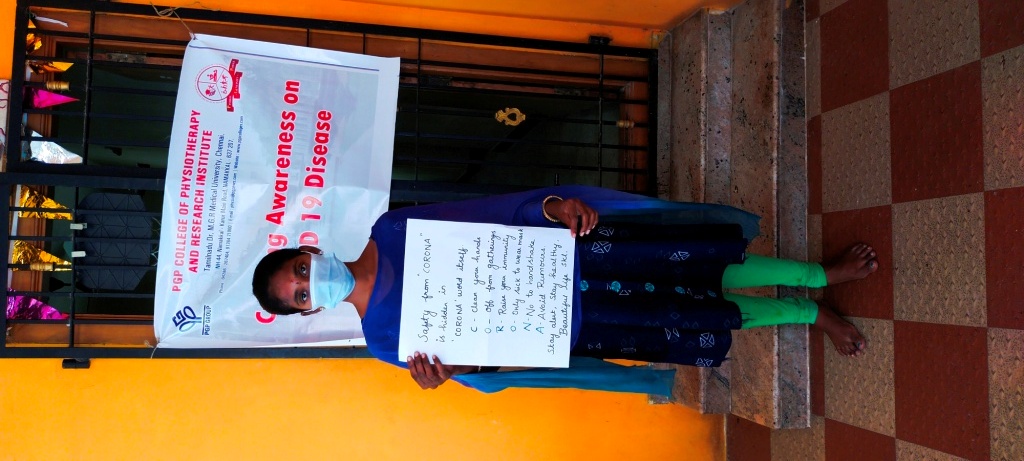 PGP COLLEGE OF PHYSIOTHERAPY
AND RESEARCH INSTITUTE
Tamilnadu Dr. M.G.R Medical University, Chennai.
PGP GROUP
Awareness on
D 19 Disease
Safety from "CORONA"
is hidden in
"CORONA" word itself
C - clean your hands
O - Off from gatherings
R - Raise your immunity
O - Only sick to wear mask
N - No to hand shake
A - Avoid Rumours
Stay alert, Stay healthy
Beautiful life